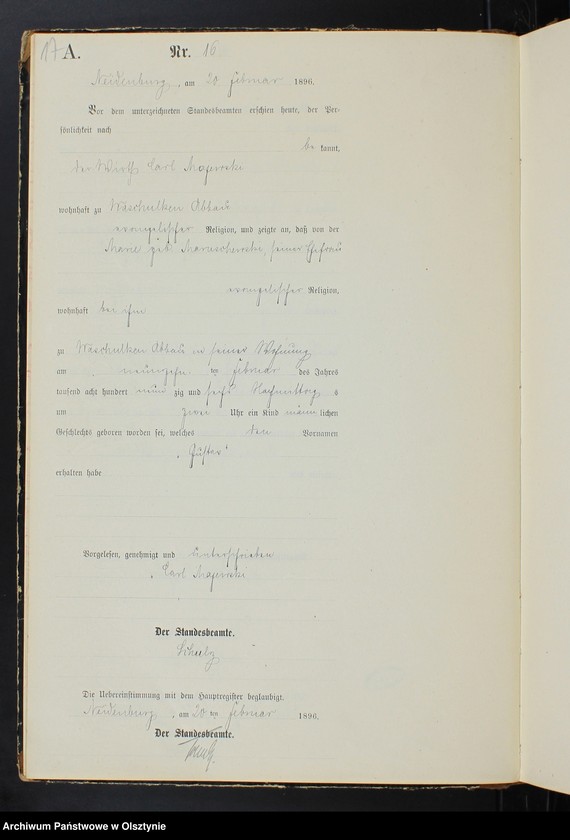 17 A. Nr. 16
Neidenburg, am 20 Februar 1896.
Vor dem unterzeichneten Standesbeamten erschien heute, der Per-
sönlichkeit nach
be kannt,
der Wirth Carl Majewski
wohnhaft zu Waschulken Abbau
evangelischer Religion, und zeigte an, daß von der
Marie geb. seiner Ehefrau
evangelischer Religion,
wohnhaft bei ihm
zu Waschulken Abbau in seiner Wohnung
am neunzehn ten Februar des Jahres
tausend acht hundert neun zig und sechs Nachmittags
um zwei Uhr ein Kind männ lichen
Geschlechts geboren worden sei, welches den Vornamen
"Gustav"
erhalten habe
Vorgelesen, genehmigt und unterschrieben
Carl Majewski
Der Standesbeamte.
Schulz
Die Uebereinstimmung mit dem Hauptregister beglaubigt.
Neidenburg, am 20 ten Februar 1896.
Der Standesbeamte.
Archiwum Państwowe w Olsztynie